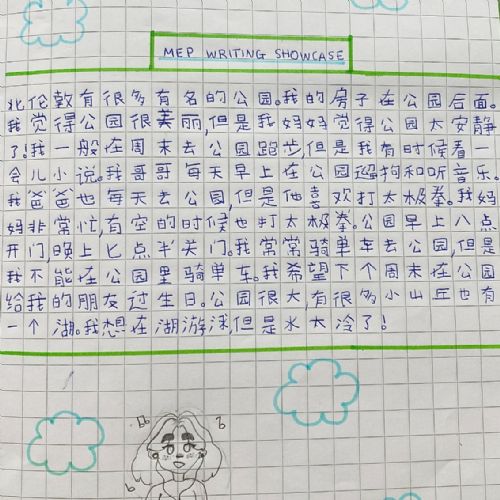 MEP WRITING SHOWCASE
北伦敦有很多有名的公园。我的房子在公园后面。
我觉得公园很美丽,但是我妈妈觉得公园太安静
了!我一般在周末去公园跑步,但是我有时候看一
会儿小说。我哥哥每天早上在公园遛狗和听音乐。
我爸爸也每天去公园,但是他喜欢打太极拳。我妈
妈非常忙,有空的时候也打太极拳。公园早上八点
开门,晚上七点半关门。我常常骑单车去公园,但是
我不能在公园里骑单车。我希望下个周末在公园
给我的朋友过生日。公园很大,有很多小山丘也有
一个湖。我想在湖游泳,但是水太冷了!